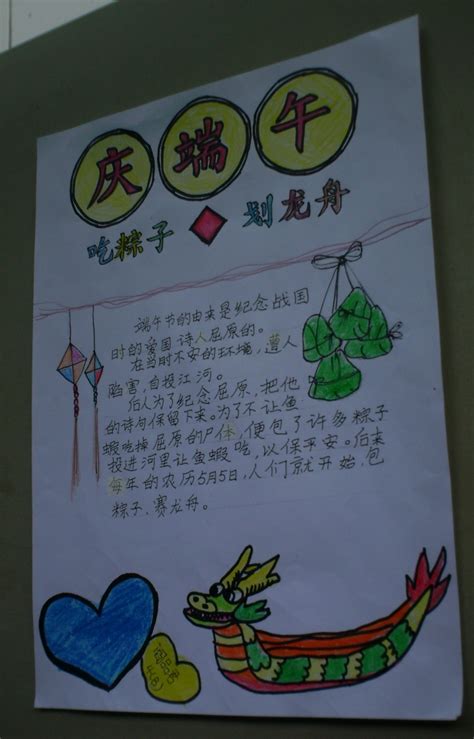 庆端午
吃粽子 划龙舟
端午节的由来是纪念战国
时的爱国诗人屈原的。
在当时不安的环境，遭人
陷害，自投江河。
后人为了纪念屈原，把他
的诗句保留下来。为了不让鱼
虾吃掉屈原的尸体，便包了许多粽子
投进河里让鱼虾吃，以保平安。后来
每年的农历5月5日，人们就开始包
粽子、赛龙舟。